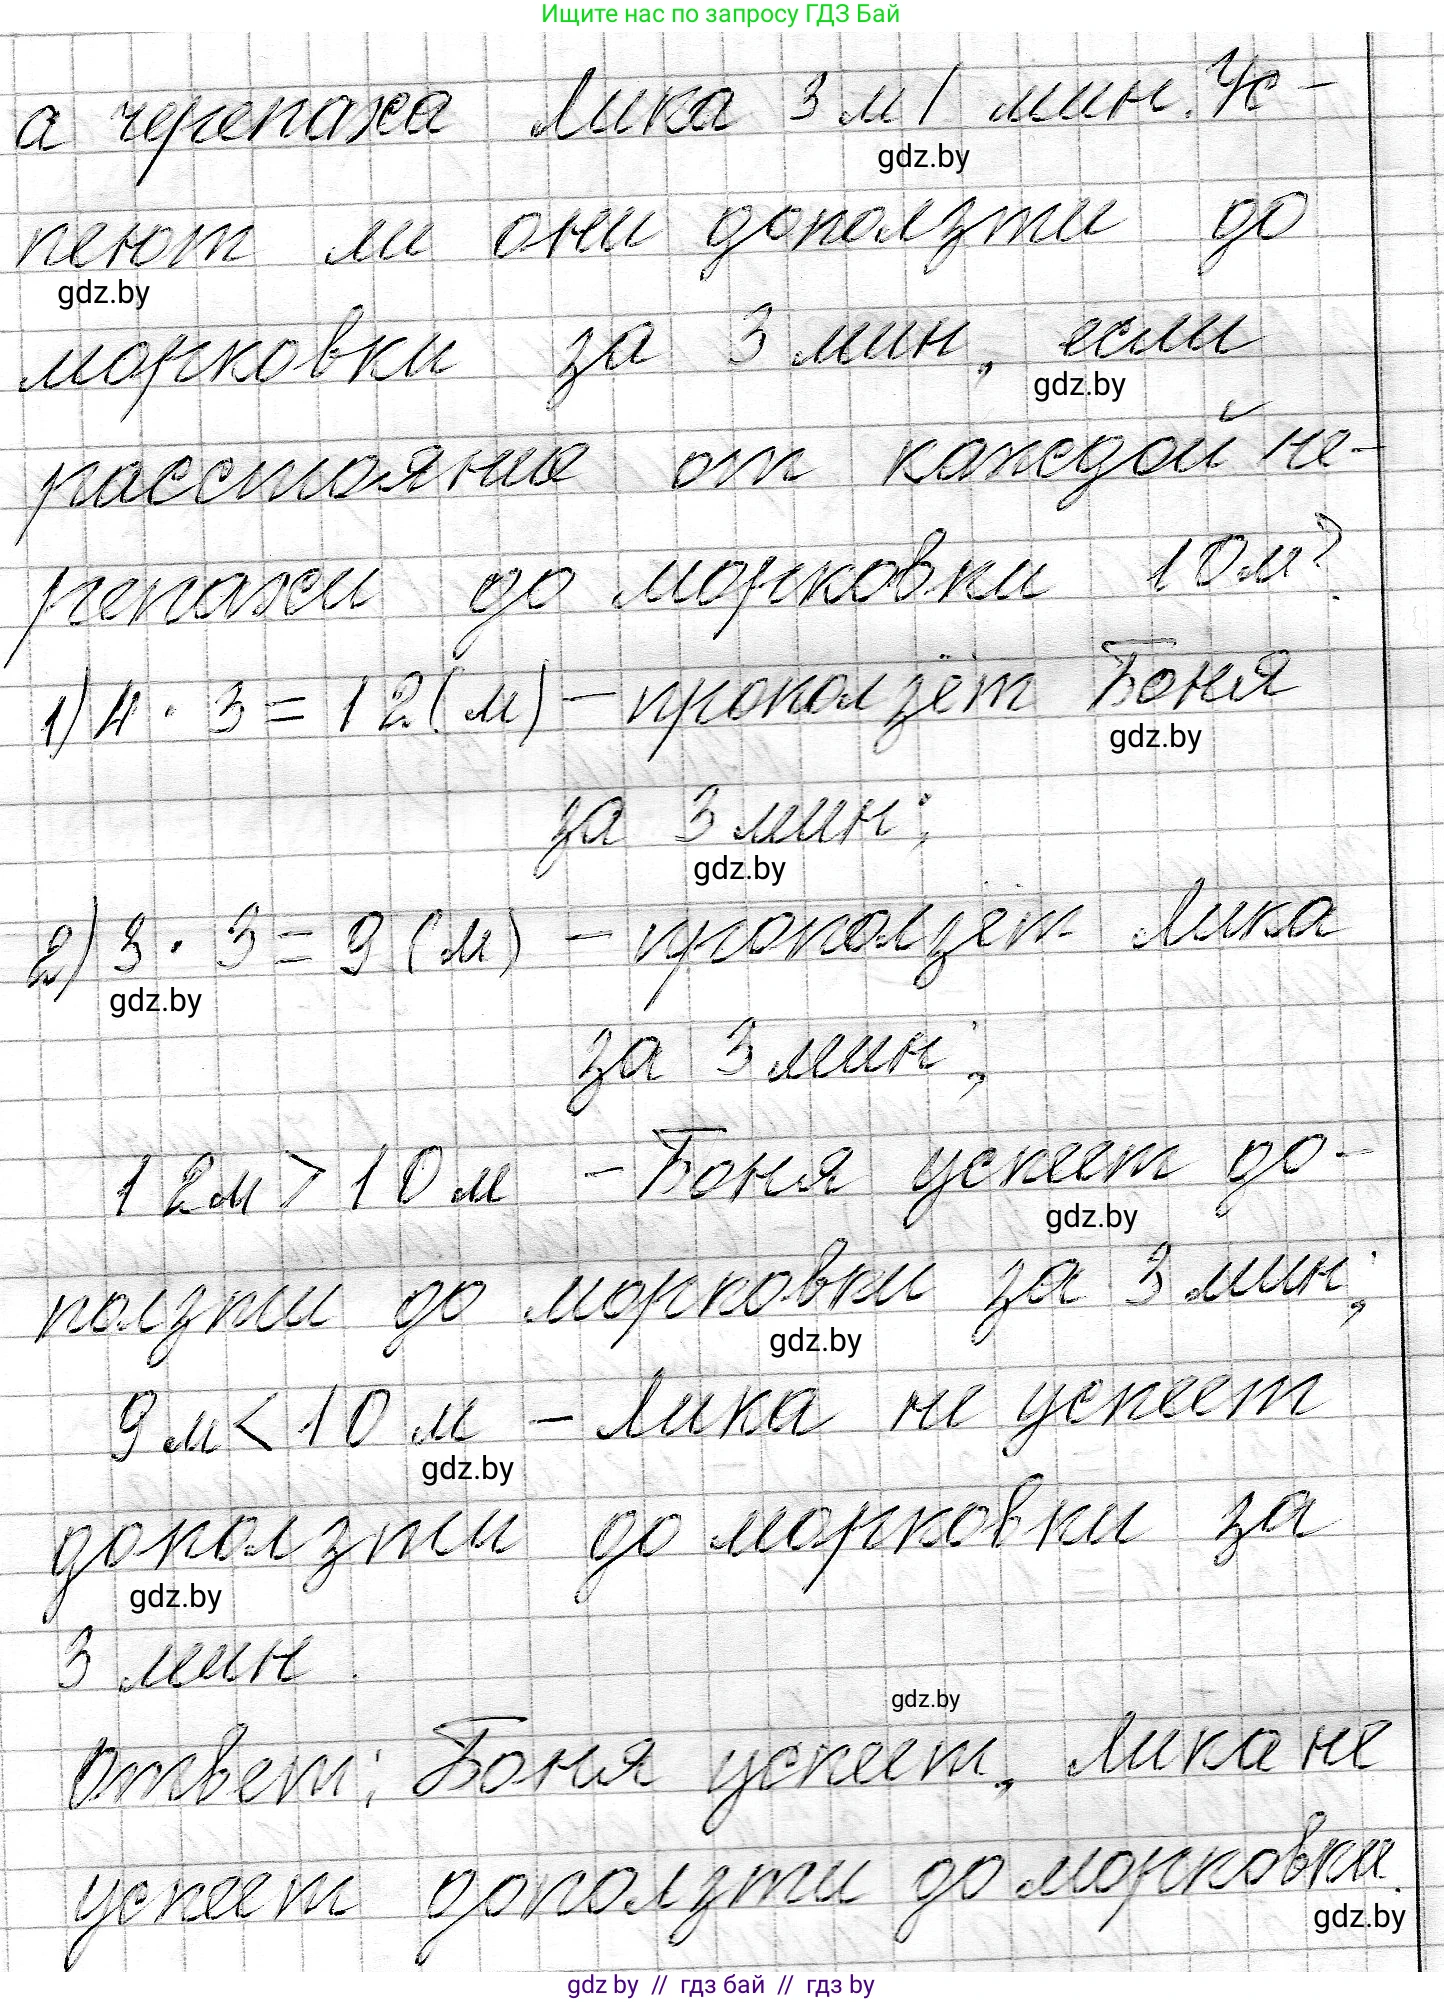 Ищите нас по запросу ГДЗ Бай
а черепаха Лика 3 м/мин. Ус-
gdz.by
пеют ли они доползти до
gdz.by
морковки за 3 мин, если
gdz.by
расстояние от каждой че-
репахи до морковки 10 м?
1) 4 · 3 = 12 (м) – проползёт Боня
gdz.by
за 3 мин;
gdz.by
2) 3 · 3 = 9 (м) – проползёт Лика
gdz.by
за 3 мин;
12 м > 10 м – Боня успеет до-
gdz.by
ползти до морковки за 3 мин;
gdz.by
9 м < 10 м – Лика не успеет
gdz.by
доползти до морковки за
gdz.by
3 мин.
gdz.by
Ответ: Боня успеет, Лика не
успеет доползти до морковки.
gdz.by
gdz by // гдз бай // гдз by